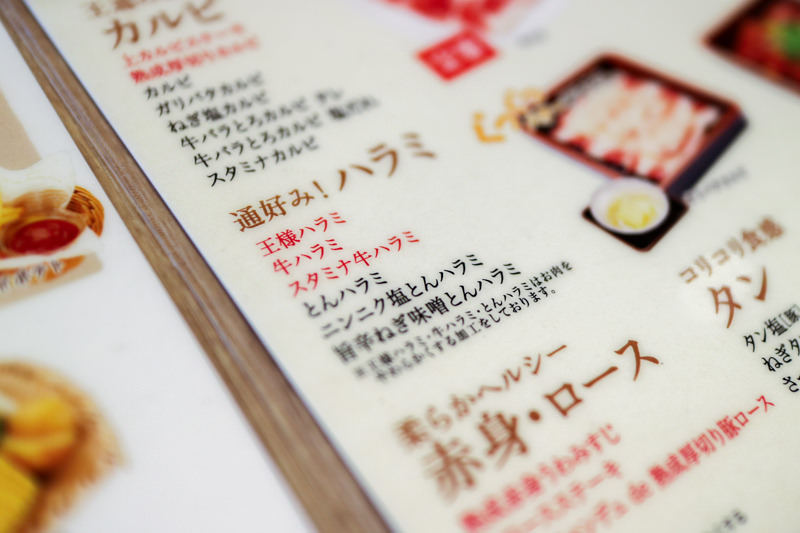 カルビ
上カルビステーキ
熟成厚切りカルビ
カルビ
ガリバタカルビ
ねぎ塩カルビ
牛バラとろカルビ タレ
牛バラとろカルビ
スタミナカルビ
通好み!ハラミ
王様ハラミ
牛ハラミ
スタミナ牛ハラミ
とんハラミ
ニンニク塩とんハラミ
旨辛ねぎ味噌とんハラミ
※王様ハラミ・牛ハラミ・とんハラミはお肉を
やわらかくする加工をしております。
柔らかヘルシー
赤身・ロース
熟成赤身うわみすじ
ロースステーキ
de 熟成厚切り豚ロース
コリコリ食感
タン
タン塩[豚]
ねぎタ
さ